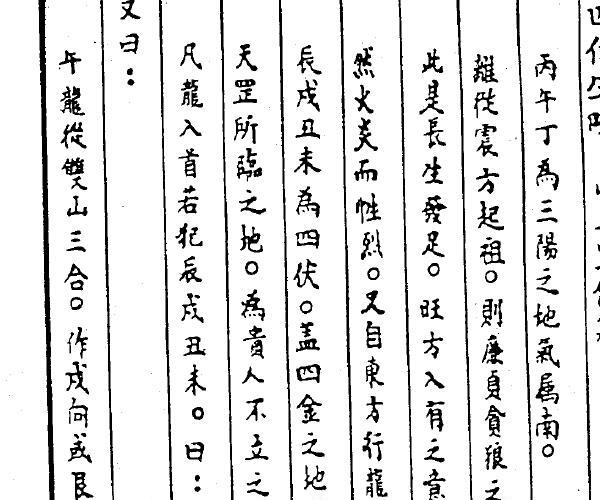 丙午丁為三陽之地氣屬南。
離從震方起祖。則廉貞貪狼之
此是長生發足。旺方入有之意
然火炎而性烈。又自東方行龍
辰戌丑未為四伏。盖四金之地
天罡所臨之地。為貴人不立之
凡龍入首若犯辰戌丑未。曰：
又曰：
午龍從雙山三合。作戌向或艮